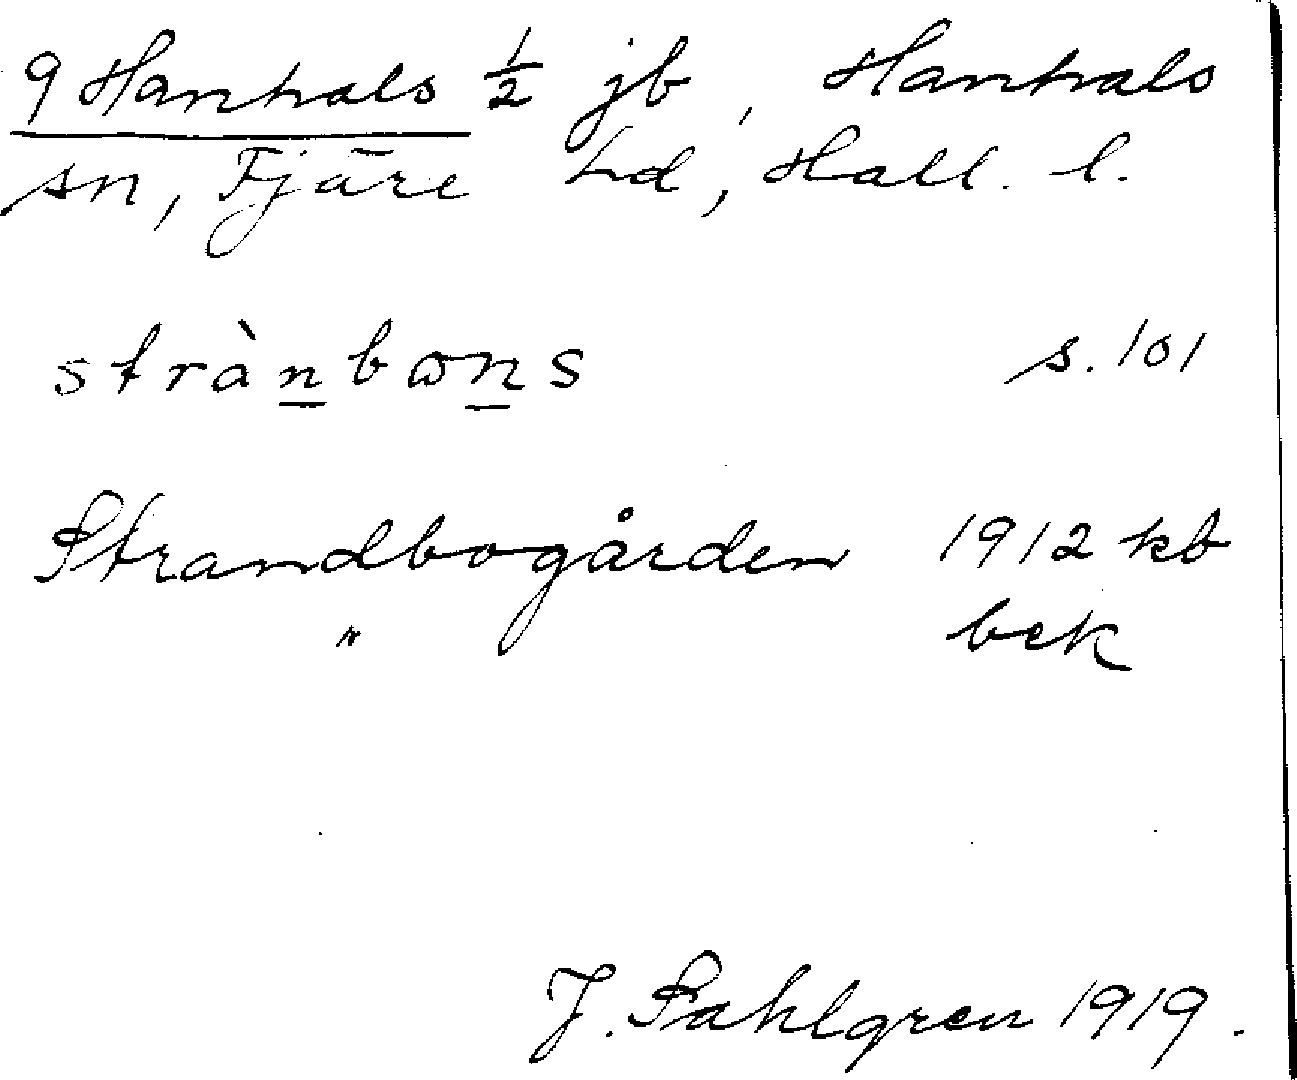 9 Hanhals ½ jb, Hanhals
sn, Fjäre hd, Hall. l.
strànbωns s. 101
Strandbogården 1912 kb
" bek
J. Sahlgren 1919.